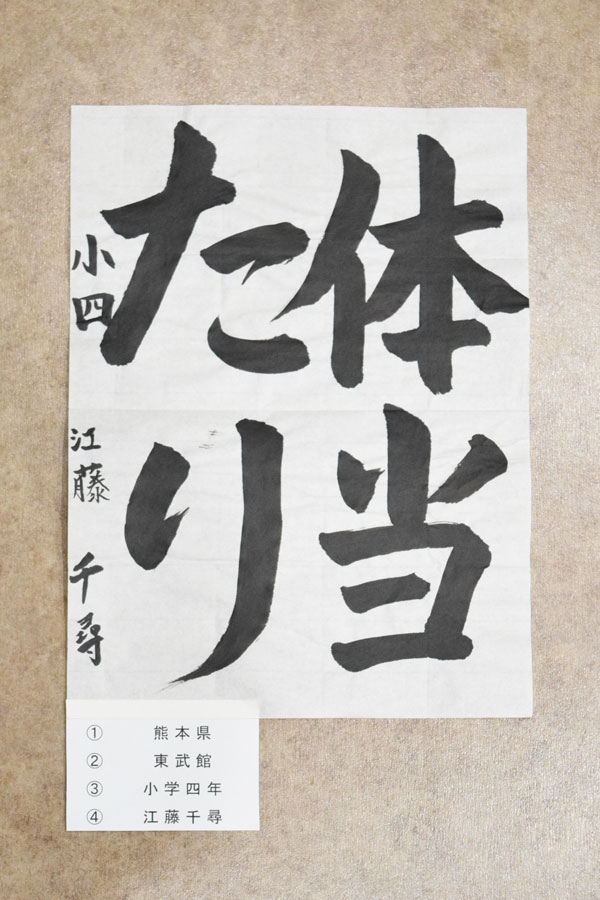 体当
たり
小四 江藤 千尋
① 熊本県
② 東武館
③ 小学四年
④ 江藤千尋